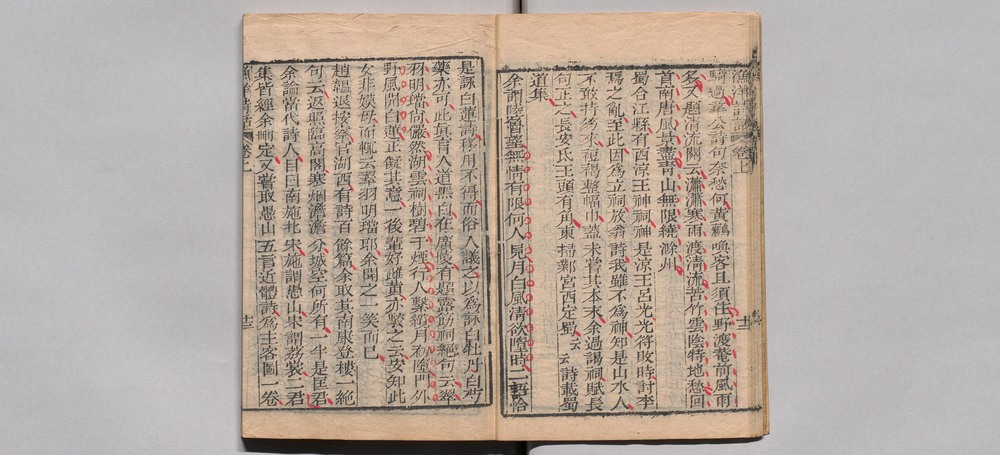 漁洋詩話 卷上 十二
騎過華公詩句奈愁何黃鸝喚客且須住野渡菴前風雨
多又題清流關云瀟瀟寒雨渡清流苦竹雲陰特地愁回
首南唐風景盡青山無限繞滁州
蜀合江縣有西涼王神祠神是涼王呂光光符敗時討李
焉之亂至此因爲立祠放翁詩我雖不爲神知是山水人
不敢持笏來裋褐整幅巾蓋未嘗其本末余過謁祠賦長
句正之長安氐王頭有角東掃鄴宮西定蜀云云詩載蜀
道集
余謂陸魯望無情有限何人見月白風清欲墮時二語恰
是詠白蓮詩移用不得而俗人議之以爲詠白牡丹白芍
藥亦可此眞盲人道黑白在廣陵有題露筋祠絕句云翠
羽明璫尚儼然湖雲祠樹碧于煙行人繫纜月初墮門外
野風開白蓮正擬其意一後輩好雌黃亦駁之云安知此
女非嫫母而輒云翠羽明璫耶余聞之一笑而已
趙韞退按察官湖西有詩百餘篇余取其南康登樓一絕
句云返照臨高閣寒烟澹澹分城空何所有一半是匡君
余論當代詩人目曰南施北宋施謂愚山宋謂荔裳二君
集皆經余刪定又嘗取愚山五言近體詩爲主客圖一卷
漁洋詩話 卷上 十二